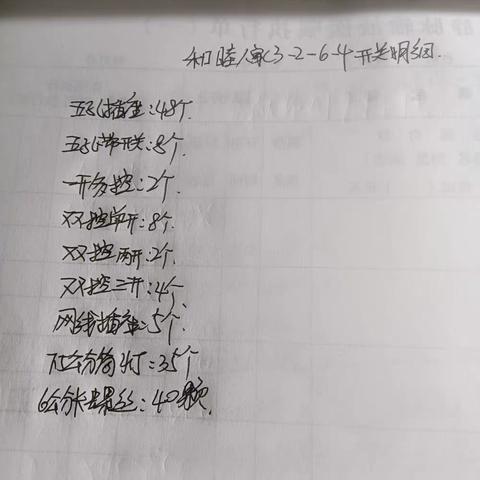 和睦人家3-2-6-4开关明细.
五孔插座:48个.
五孔带开关:8个.
一开多控:2个.
双控单开:8个.
双控两开:2个.
双控三开:4个.
网线插座:5个.
公分筒灯:35个
6公分长螺丝:40颗.